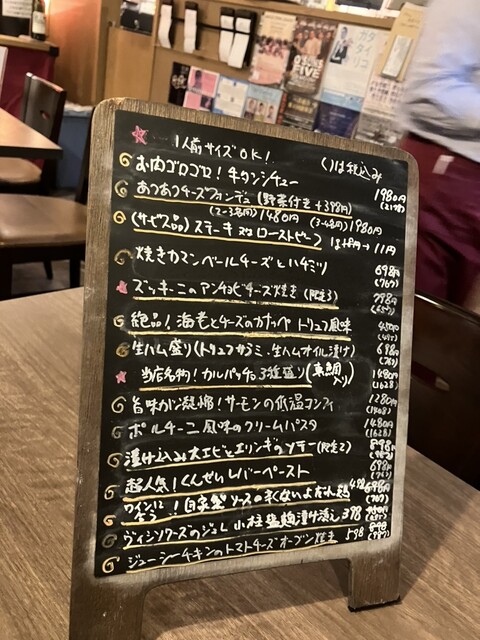 1人前サイズOK!
( )は税込み
お肉ゴロゴロ!牛タンシチュー 1980円 (2178)
あつあつチーズフォンデュ(野菜付き+398円)
(2~3名用)1480円 (3~4名用)1980円
(サービス品)ステーキ又はローストビーフ 1は十円→11円
焼きカマンベールチーズとハチミツ 698円 (767)
ズッキーニのアンチョビチーズ焼き(限定3) 798円
絶品!海老とチーズのカナッペ トリュフ風味 450円 (495)
生ハム盛り(トリュフサラミ、生ハムオイル漬け) 698円 (767)
当店名物!カルパッチョ3種盛り(真鯛入り) 1480円 (1628)
旨味が凝縮!サーモンの低温コンフィ 1280円 (1408)
ポルチーニ風味のクリームパスタ 1480円 (1628)
漬け込み大エビとエリンギのソテー(限定2) 898円 (987)
超人気!くんせいレバーペースト 698円 (767)
ワインに合う!自家製ソースの辛くないよだれ鶏 498 698円 (767)
ヴィシソワーズのジュレ 小柱塩麹漬け添え 398
ジューシーチキンのトマトチーズオーブン焼き 598 898 (987)
ガタタイリコ
FIVE